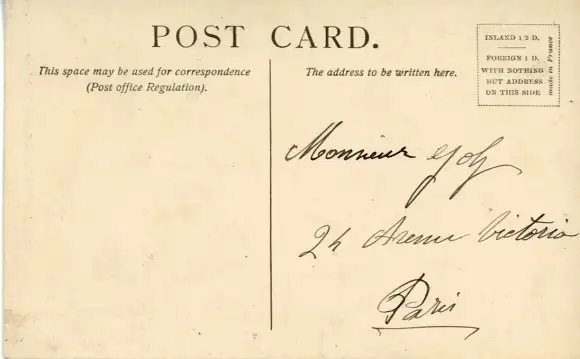 POST CARD.
This space may be used for correspondence
(Post office Regulation).
The address to be written here.
INLAND 1/2 D.
FOREIGN 1 D.
WITH NOTHING
BUT ADDRESS
ON THIS SIDE
made in France
Monsieur
24 Avenue Victoria
Paris